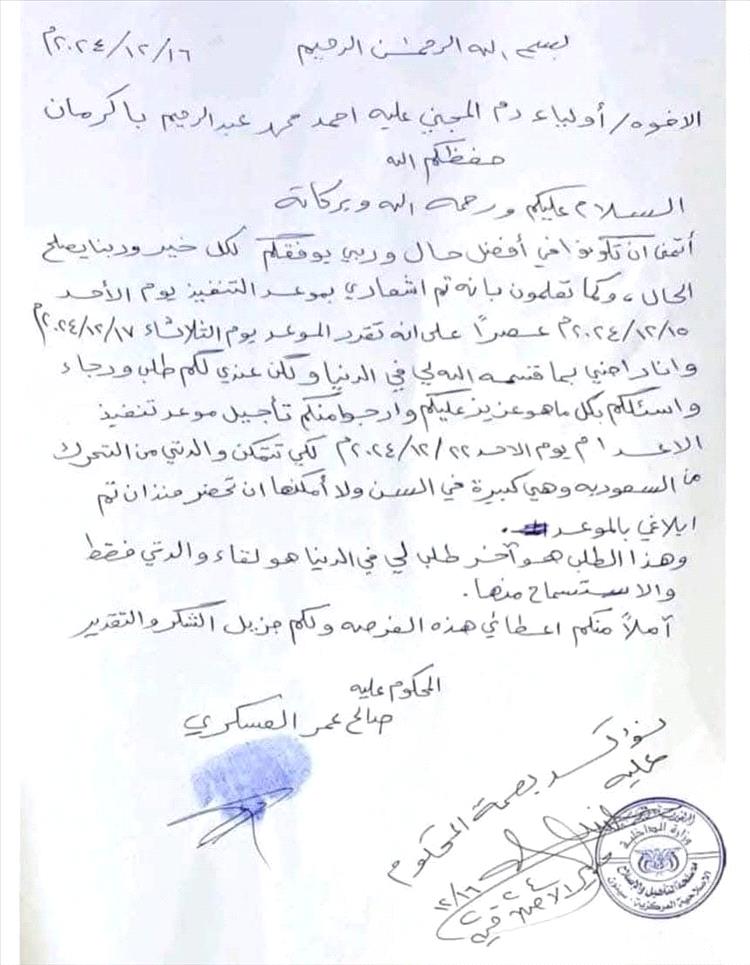 بسم الله الرحمن الرحيم ٢٠٢٤/١٢/١٦م
الاخوه/ أولياء دم المجني عليه احمد محمد عبدالرحيم باكرمان
حفظكم الله
السلام عليكم ورحمه الله وبركاته
أتمنى ان تكونوا في أفضل حال وربي يوفقكم لكل خير وربنا يصلح
الحال ، وكما تعلمون بانه تم اشعاري بموعد التنفيذ يوم الأحد
٢٠٢٤/١٢/١٥م عصراً على انه تقرر الموعد يوم الثلاثاء ٢٠٢٤/١٢/١٧م
وانا راضي بما قسمه الله لي في الدنيا ولكن عندي لكم طلب ورجاء
واسئلكم بكل ماهو عزيز عليكم وارجوا منكم تأجيل موعد تنفيذ
الاعدام يوم الاحد ٢٠٢٤/١٢/٢٢م لكي تتمكن والدتي من التحرك
من السعوديه وهي كبيرة في السن ولا أمكنها ان تحضر منذ ان تم
ابلاغي بالموعد .
وهذا الطلب هو آخر طلب لي في الدنيا هو لقاء والدتي فقط
والاستسماح منها.
آملاً منكم اعطائي هذه الفرصه ولكم جزيل الشكر والتقدير
المحكوم عليه
صالح عمر العسكري
نؤكد بصمة المحكوم
عليه
١٢/١٦
٢٤
وزارة الداخلية
مصلحة التأهيل والإصلاح
الاصلاحية المركزية - سيئون